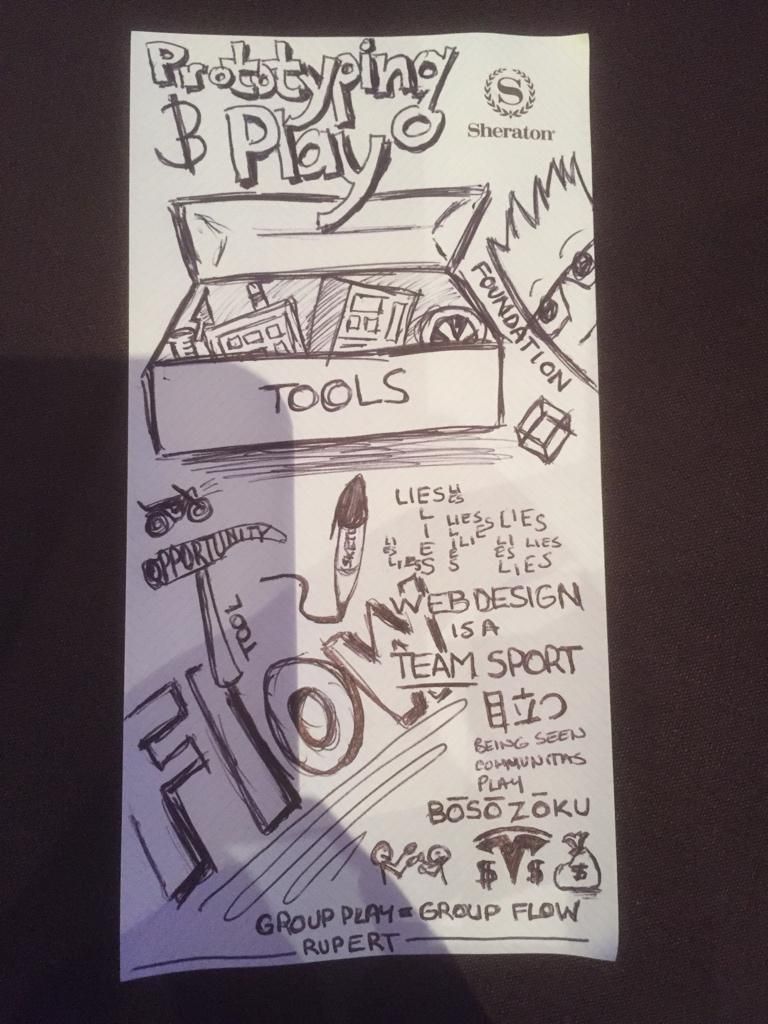 Prototyping
& Play
S
Sheraton
FOUNDATION
TOOLS
OPPORTUNITY
TOOL
SKETCH
LIES LIES
LIES LIES LIES
LIES LIES LIES
LIES LIES LIES
FLOW
WEB DESIGN
IS A
TEAM SPORT
目立つ
BEING SEEN
COMMUNITAS
PLAY
BŌSŌZŌKU
$ $ $
GROUP PLAY = GROUP FLOW
RUPERT